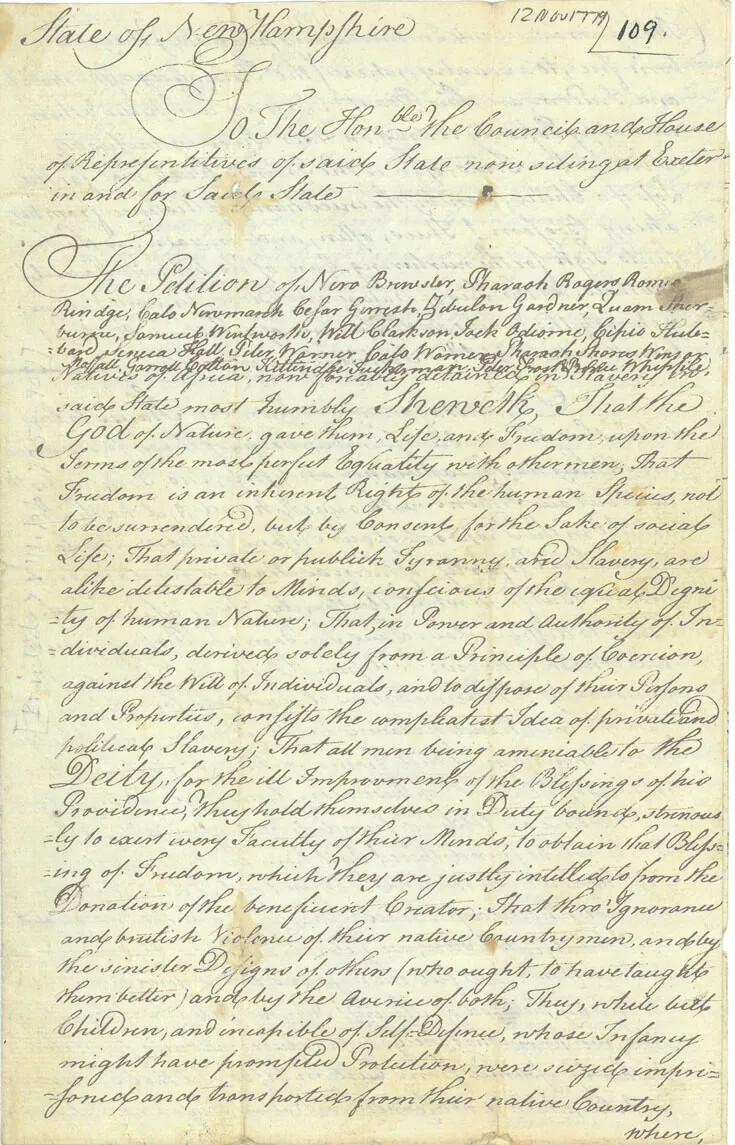 12 Nov 1779
109.
State of New Hampshire
To The Hon.ble The Council and House
of Representitives of said State now siting at Exeter
in and for Said State
The Petition of Nero Brewster, Pharaoh Rogers Romeo
Rindge, Cato Newmarch Cesar Gerrish, Zebulon Gardner, Quam Sher-
burne, Samuel Wentworth, Will Clarkson Jack Odiorne, Cipio Hub-
=bard Seneca Hall, Peter Warner, Cato Warner, Pharaoh Shores Winsor
Moffatt, Garrott Colton, Kittindge Tuckerman, Peter Frost Prince Whipple,
Natives of Africa, now forcably detained in Slavery in
said State most humbly Sheweth, That the
God of Nature, gave them, Life, and Freedom, upon the
Terms of the most perfect Equality with other men; That
Freedom is an inherent Right of the human Species, not
to be surrendered, but by Consent, for the Sake of social
Life; That private or publick Tyranny, and Slavery, are
alike detestable to Minds, conscious of the equal Digni
=ty of human Nature; That, in Power and Authority of In=
=dividuals, derived solely from a Principle of Coercion,
against the Will of Individuals, and to dispose of their Persons
and Properties, consists the compleatest Idea of private and
political Slavery; That all men being ameniable to the
Deity, for the ill Improvment of the Blessings of his
Providence, They hold themselves in Duty bound, strenous
=ly to exert every Faculty of their Minds, to obtain that Bless=
=ing of Freedom, which they are justly intitled to from the
Donation of the beneficent Creator; That thro' Ignorance
and brutish Violence of their native Countrymen, and by
the sinister Designs of others (who ought, to have taught
them better) and by the Averice of both; They, while but
Children, and incapible of Self-Defence, whose Infancy
might have prompted Protection, were seized impri=
=soned and transported from their native Country,
where,